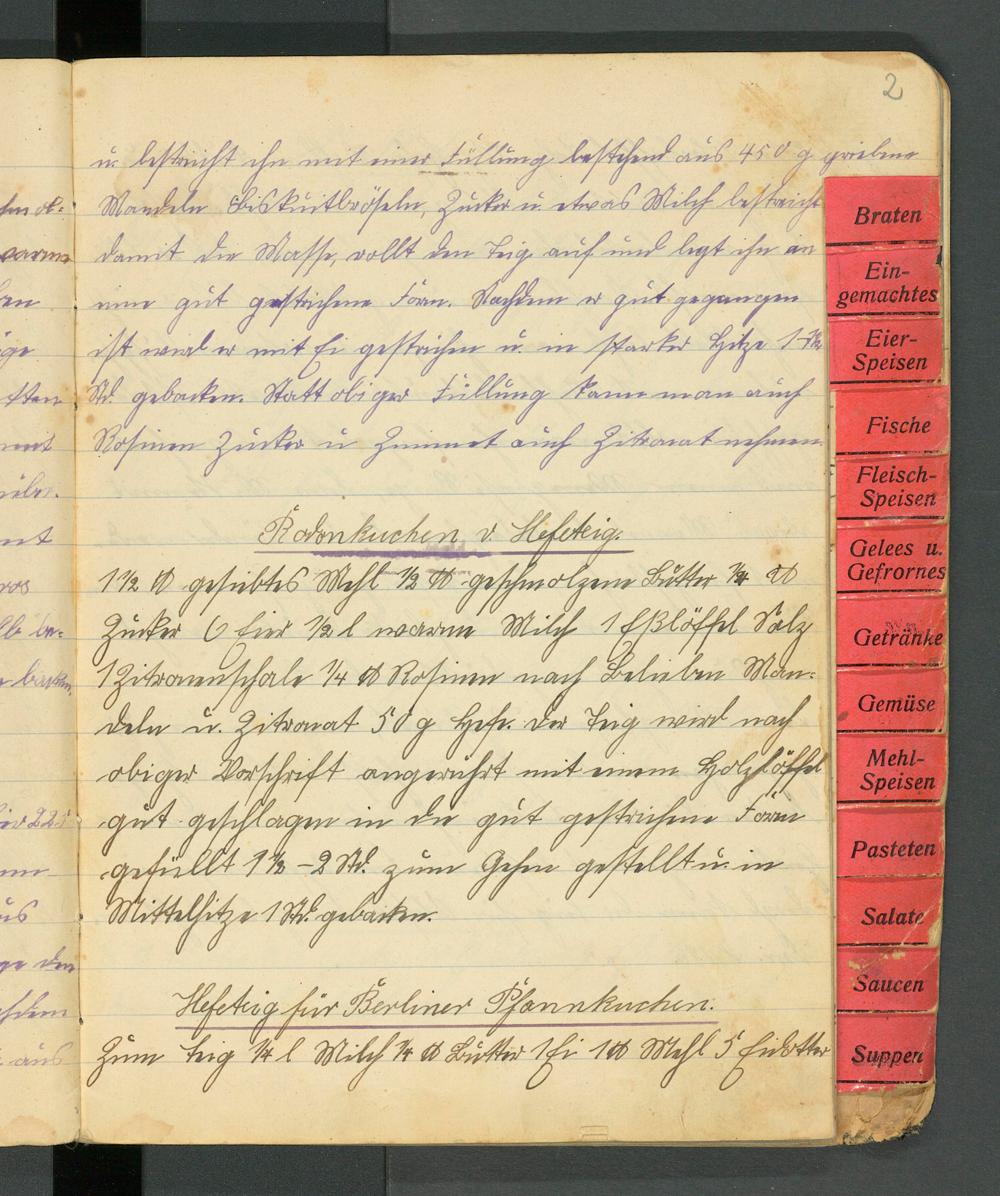 2
u. bestreicht ihn mit einer Füllung bestehend aus 450 g geriebene
Mandeln Biskuitbröseln, Zucker u. etwas Milch bestreicht
damit die Masse, rollt den Teig auf und legt ihn in
eine gut gestrichene Form. Nachdem er gut gegangen
ist wird er mit Ei gestrichen u. in starker Hitze 1-1½
Std. gebacken. Statt obiger Füllung kann man auch
Rosinen Zucker u Zimmet auch Zitronat nehmen
Radonkuchen v. Hefeteig.
1½ ℔ gesiebtes Mehl ½ ℔ geschmolzene Butter ¼ ℔
Zucker 6 Eier ½ l warme Milch 1 Eßlöffel Salz
1 Zitronenschale ¼ ℔ Rosinen nach Belieben Man=
deln u. Zitronat 50 g Hefe. Der Teig wird nach
obiger Vorschrift angerührt mit einem Holzlöffel
gut geschlagen in die gut gestrichene Form
gefüllt 1½-2 Std. zum Gehen gestellt u. in
Mittelhitze 1 Std. gebacken.
Hefeteig für Berliner Pfannkuchen.
Zum Teig ¼ l Milch ¼ ℔ Butter 1 Ei 1 ℔ Mehl 5 Eidotter
Braten
Ein-
gemachtes
Eier-
Speisen
Fische
Fleisch-
Speisen
Gelees u.
Gefrornes
Getränke
Gemüse
Mehl-
Speisen
Pasteten
Salate
Saucen
Suppen